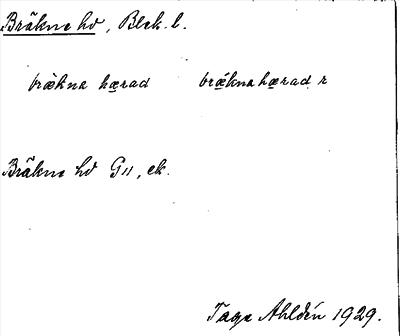 Bräkne hd, Blek. l.
brække hærad brækna hærad r
Bräkne hd G11, ek.
Tage Ahldén 1929.